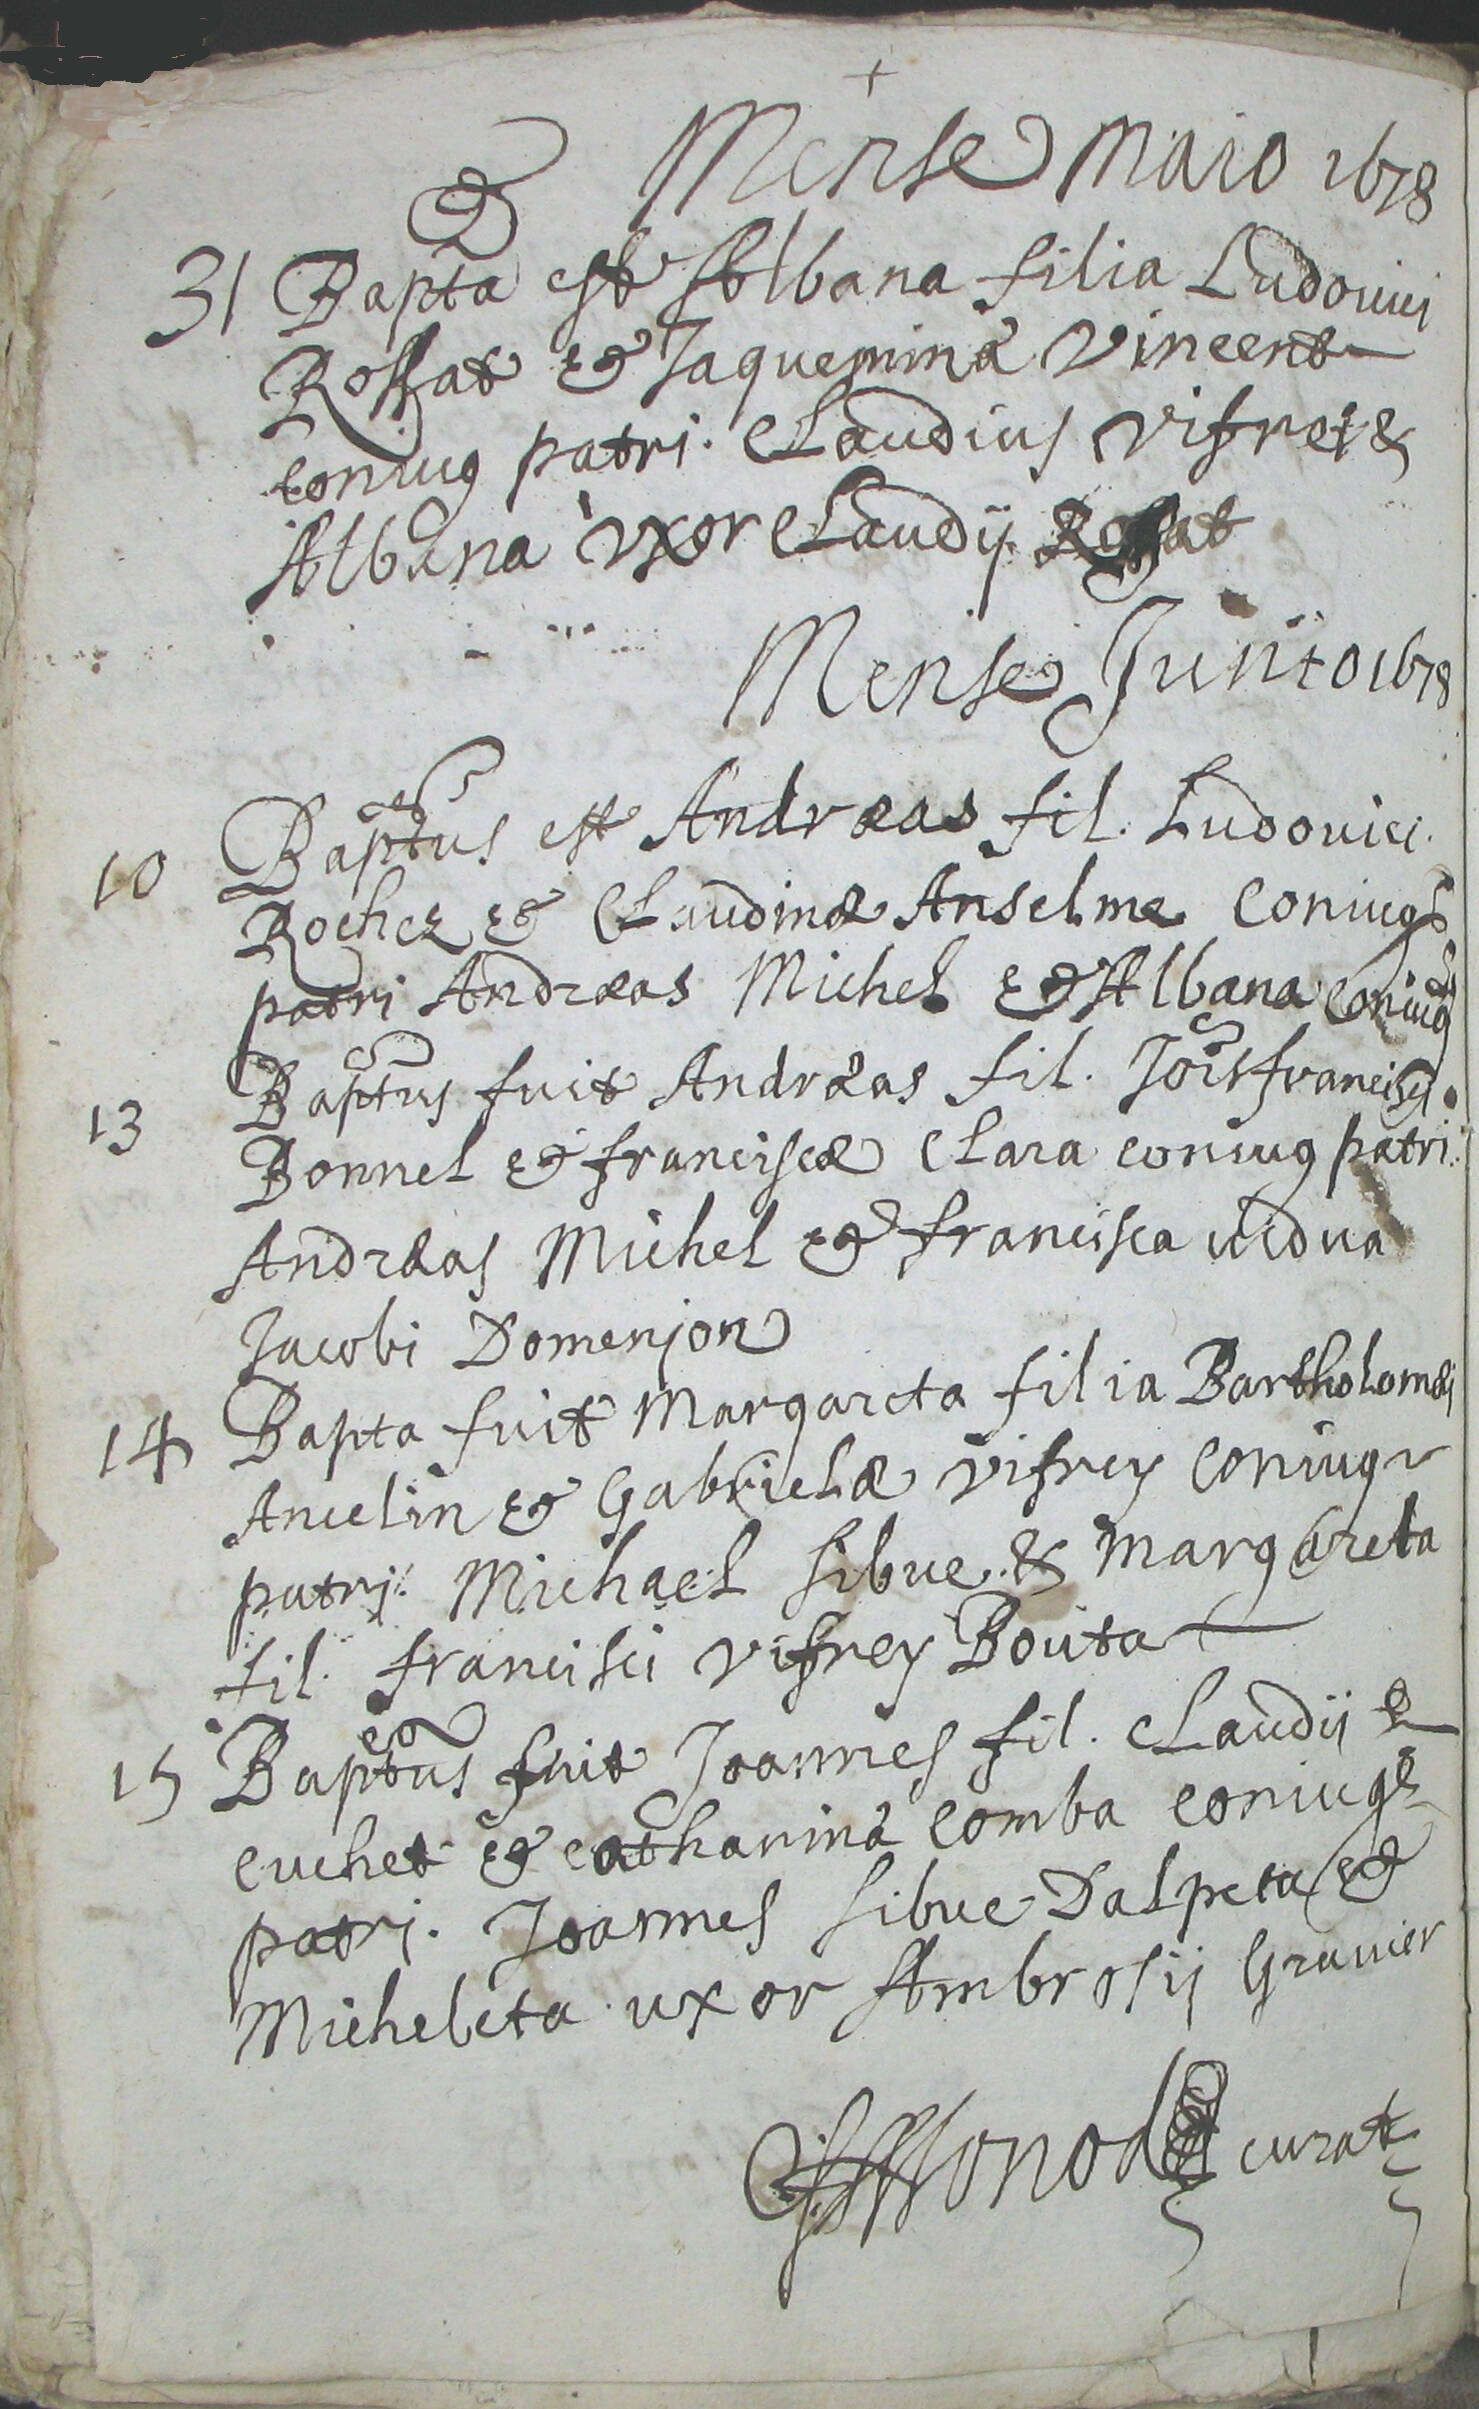 +
Mense Maio 1678
31 Bapta est Albana filia Ludovici
Rossat & Jaquemina Vincent
coniug patri. Claudius Vifrey &
Albana vxor Claudij Rossat
Mense Junio 1678
10 Baptus est Andræas fil. Ludouici
Rochez & Claudinæ Anselme coniug
patri Andræas Michel & Albana coniug
13 Baptus fuit Andræas fil. Jois francisci
Bonnel & franciscæ Clara coniug patri.
Andræas Michel & francisca uidua
Jacobi Domenjon
14 Bapta fuit Margareta filia Bartholomæi
Ancelin & Gabrielæ vifrey coniug
patrj. Michael Sibue & Margareta
fil. francisci vifrey Bouta
15 Baptus fuit Joannes fil. Claudij
cuchet & catharina Comba coniug
patrj. Joannes Sibue Dalpeta &
Micheleta uxor Ambrosij Grauier
curat